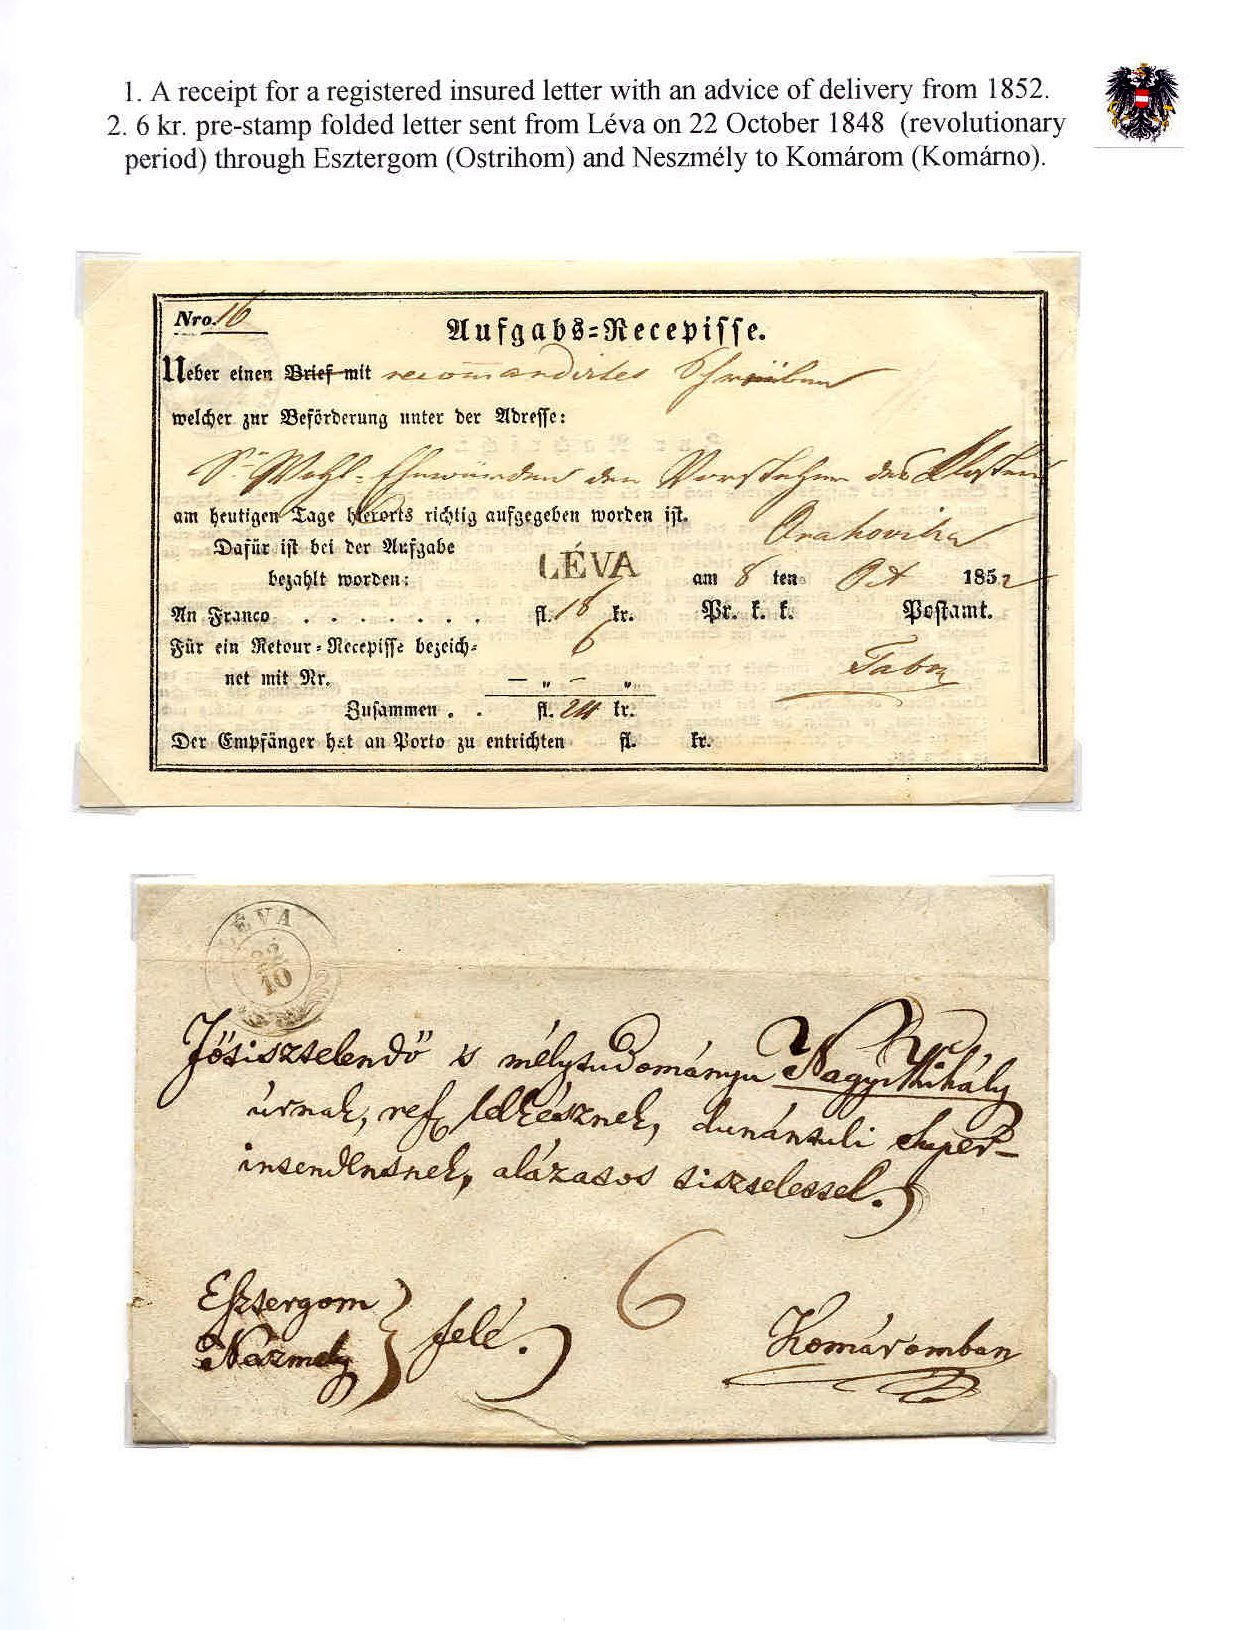 1. A receipt for a registered insured letter with an advice of delivery from 1852.
2. 6 kr. pre-stamp folded letter sent from Léva on 22 October 1848 (revolutionary
period) through Esztergom (Ostrihom) and Neszmély to Komárom (Komárno).
Nro. 16
Aufgabs=Recepisse.
Ueber einen Brief mit recomandirtes Schreiben
welcher zur Beförderung unter der Adresse:
Sr Wohl=Ehrwürden den Vorsteher des Klosters
am heutigen Tage hierorts richtig aufgegeben worden ist.
Orahovitza
Dafür ist bei der Aufgabe
bezahlt worden:
LÉVA
am 8 ten Oct 1852
An Franco . . . . . . . fl. 18 kr.
Pr. k. k. Postamt.
Für ein Retour=Recepisse bezeich=
net mit Nr. 6
— „ — „
Zusammen . . fl. 24 kr.
Der Empfänger hat an Porto zu entrichten fl. kr.
LÉVA
22
10
Főtisztelendő s mélytudományu Nagy Mihály
úrnak, ref. lelkésznek, dunántuli Super-
intendensnek, alázatos tisztelettel.
6
Esztergom
Nészmely } felé.
Komáromban